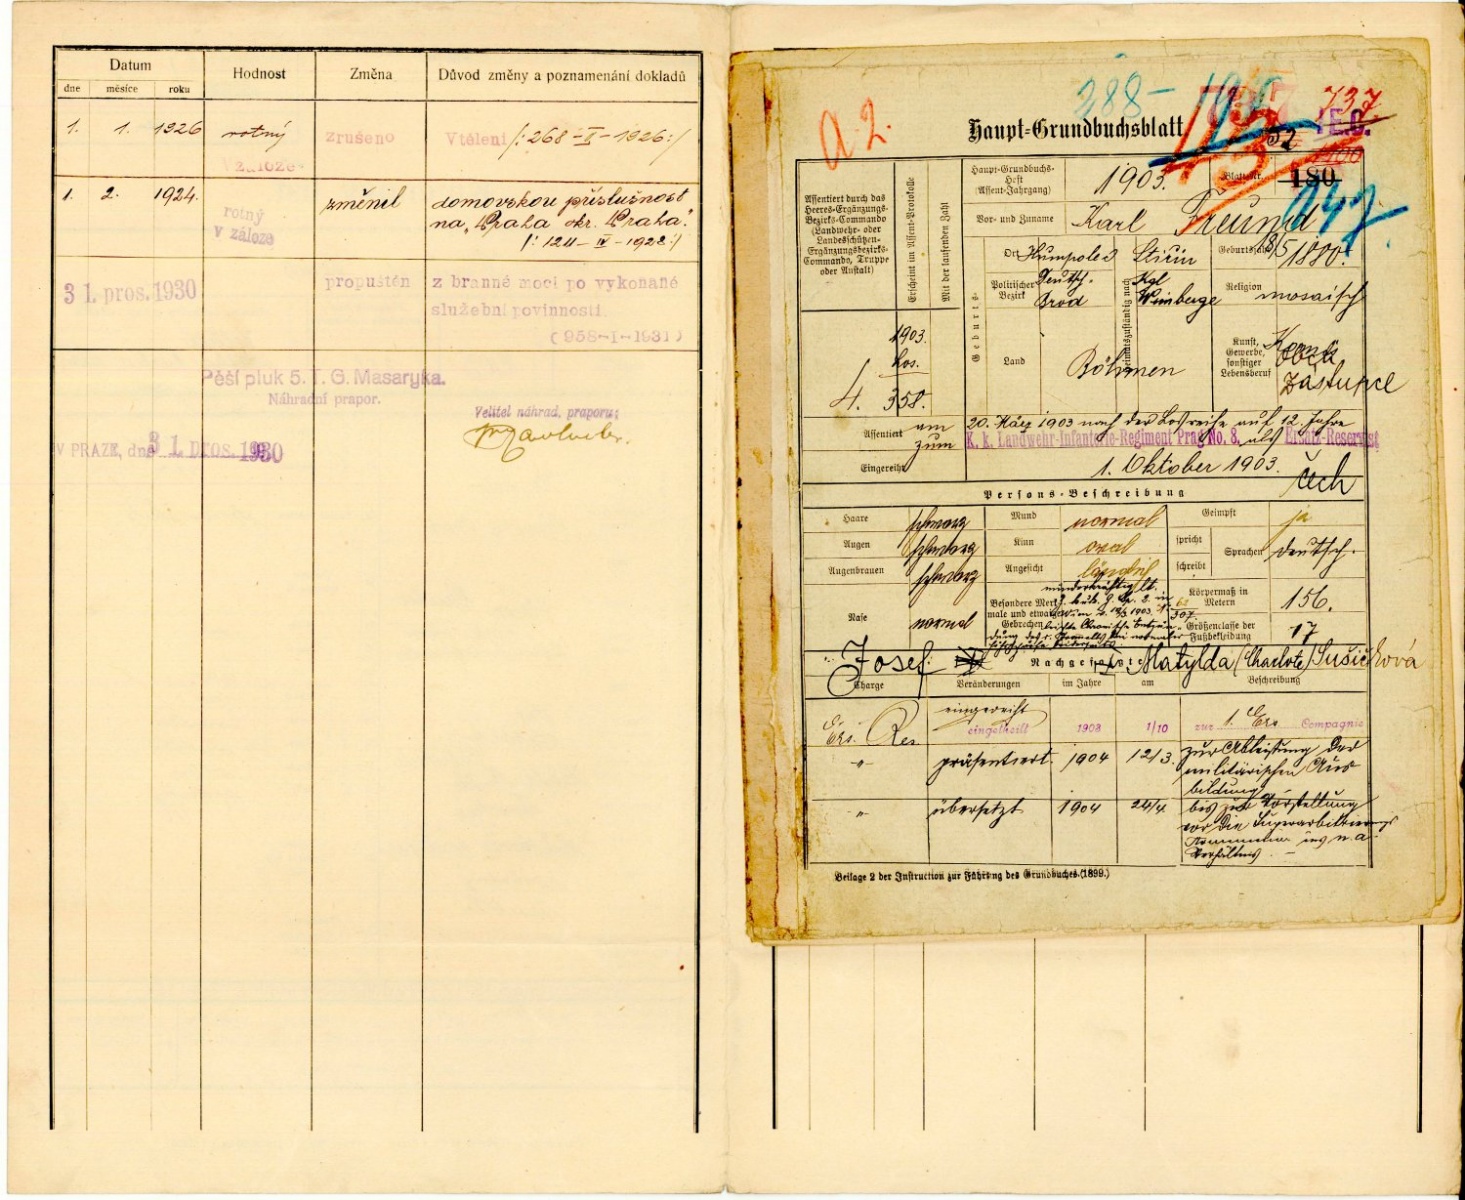 Datum
Hodnost
Změna
Důvod změny a poznamenání dokladů
dne měsíce roku
1. 1. 1926 rotný zrušeno Vtělení /: 268-I-1926:/
v záloze
1. 2. 1924. rotný změnil domovskou příslušnost
v záloze na „Praha okr. Praha“.
/: 124-IV-1928:/
31. pros. 1930 propuštěn z branné moci po vykonané
služební povinnosti.
(958-I-1931)
Pěší pluk 5. T. G. Masaryka.
Náhradní prapor.
Velitel náhrad. praporu:
V PRAZE, dne 31. pros. 1930
A. 2.
288-
737
I.E.C.
Haupt-Grundbuchsblatt
52
Assentiert durch das
Heeres-Ergänzungs-
Bezirks-Commando
(Landwehr- oder
Landesschützen-
Ergänzungsbezirks-
Commando, Truppe
oder Anstalt)
Erscheint im Assent-Protokolle
Mit der laufenden Zahl
Haupt-Grundbuchs-
Heft
(Assent-Jahrgang)
1903.
Blatt-Nr. 180
947
Vor- und Zuname Karl Freund
Geburts-
Ort Humpolec Štiřin
Geburtsjahr 8/5 1880.
Politischer
Bezirk
Deutsch.
Brod
Heimatszuständig nach
Kgl
Weinberge
Religion mosaisch
Land Böhmen
Kunst,
Gewerbe,
sonstiger
Lebensberuf
obch
zástupce
1903.
Los.
4. 358.
Assentiert am 20. März 1903 nach der Losreihe auf 12 Jahre
zum K. k. Landwehr-Infanterie-Regiment Prag No. 8, als Ersatz-Reservist
Eingereiht 1. Oktober 1903.
čech
Persons-Beschreibung
Haare schwarz
Mund normal
Geimpft ja
Augen schwarz
Kinn oval
spricht
schreibt
Sprachen deutsch.
Augenbrauen schwarz
Angesicht länglich
Nase normal
Besondere Merk-
male und etwaige
Gebrechen
Körpermaß in
Metern 156.
Größenclasse der
Fußbekleidung 17
Josef Nachgesetzte Matylda (Charlote) Sušičková
Charge Veränderungen im Jahre am Beschreibung
Ers. Res. eingereiht
eingetheilt 1903 1/10 zur 1. Ers Compagnie
" präsentiert 1904 12/3. zur Ableistung der
militärischen Aus
bildung
" übersetzt 1904 24/4 bis zur Vorstellung
vor die Superarbitrierungs
ins n. a.
Verhältnis.
Beilage 2 der Instruction zur Führung des Grundbuches.(1899.)